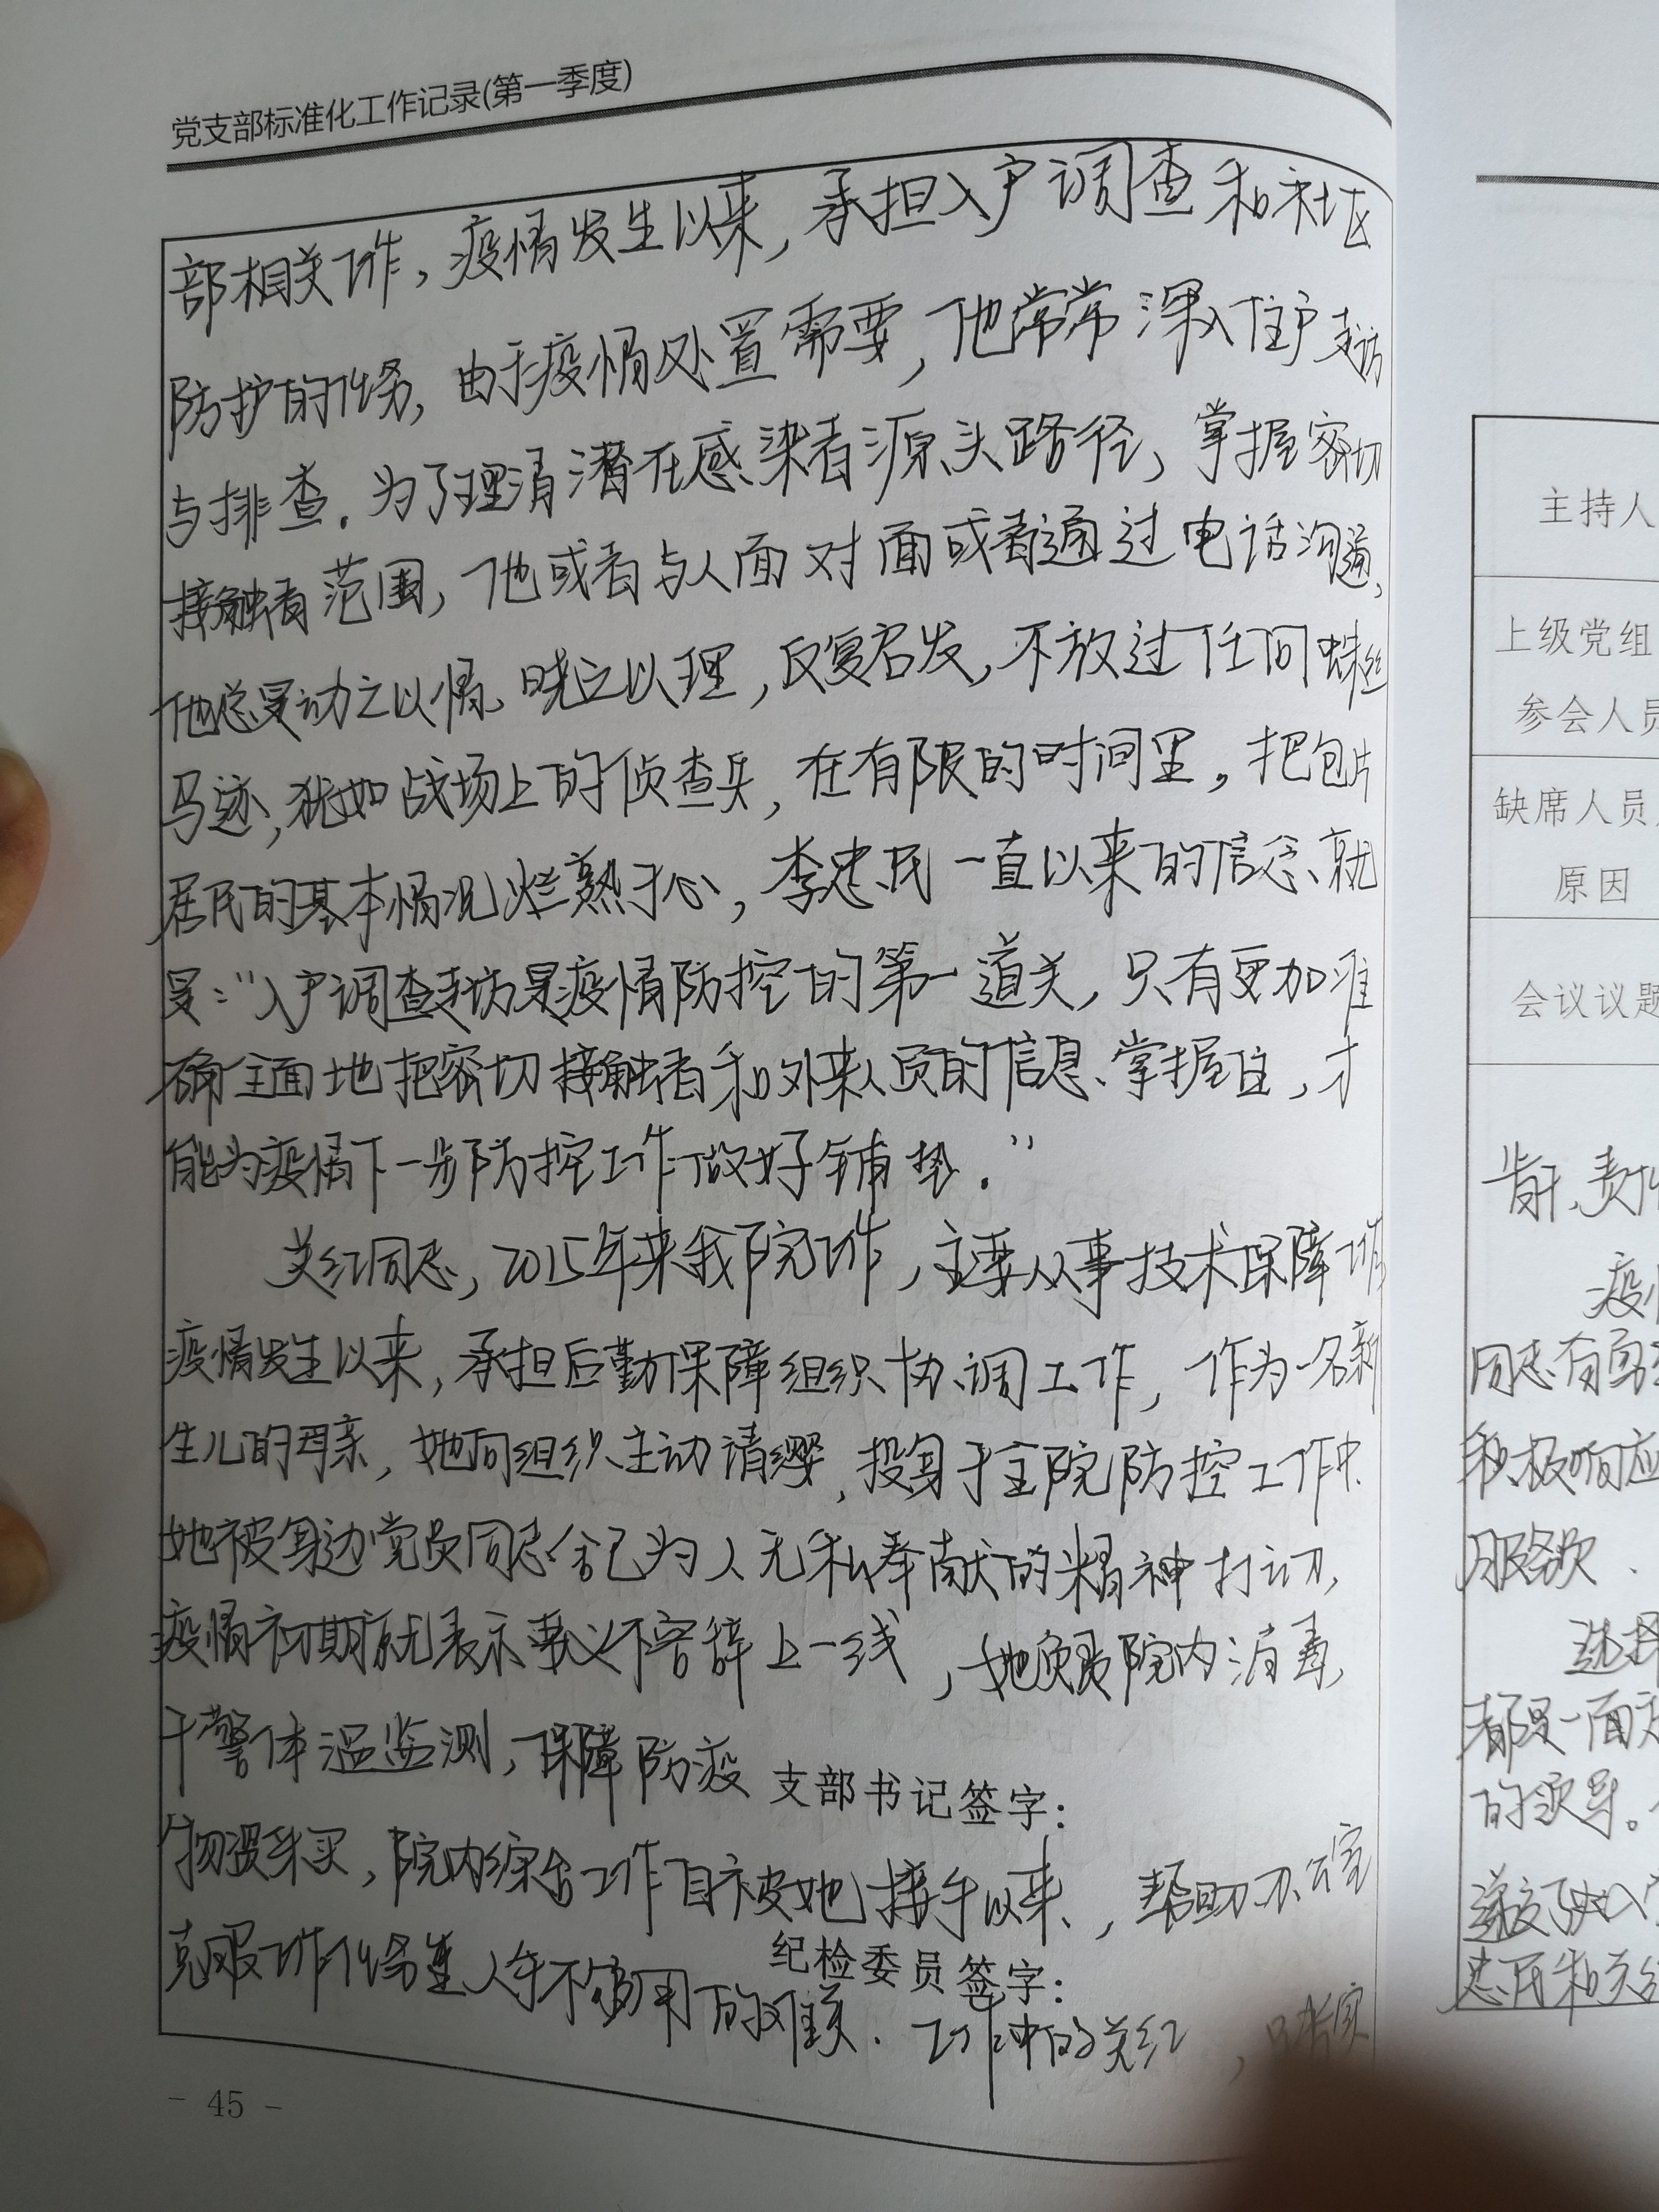 党支部标准化工作记录(第一季度)
部相关工作，疫情发生以来，承担入户调查和社区
防护的任务，由于疫情处置需要，他常常深入住户走访
与排查．为了理清潜在感染者源头路径，掌握密切
接触者范围，他或者与人面对面或者通过电话沟通，
他总是动之以情、晓之以理，反复启发，不放过任何蛛丝
马迹，犹如战场上的侦查兵，在有限的时间里，把包片
居民的基本情况烂熟于心，李忠民一直以来的信念、就
是：“入户调查走访是疫情防控的第一道关，只有更加准
确全面地把密切接触者和外来人员的信息、掌握住，才
能为疫情下一步防控工作做好铺垫．”
关红同志，2015年来我院工作，主要从事技术保障工作
疫情发生以来，承担后勤保障组织协调工作，作为一名新
生儿的母亲，她向组织主动请缨，投身于全院防控工作中．
她被身边党员同志舍己为人无私奉献的精神打动，
疫情初期就表示要义不容辞上一线，她负责院内消毒，
干警体温监测，保障防疫
支部书记签字：
物资采买，院内综合工作自被她接手以来、，帮助办公室
克服工作任务重人手不够用的难关．工作中的关红，
纪检委员签字：
- 45 -
主持人
上级党组
参会人员
缺席人员
原因
会议议题
疫情
同志有
积极响应
服务
选择
都是一面
的领导。
递交了
忠民和关红